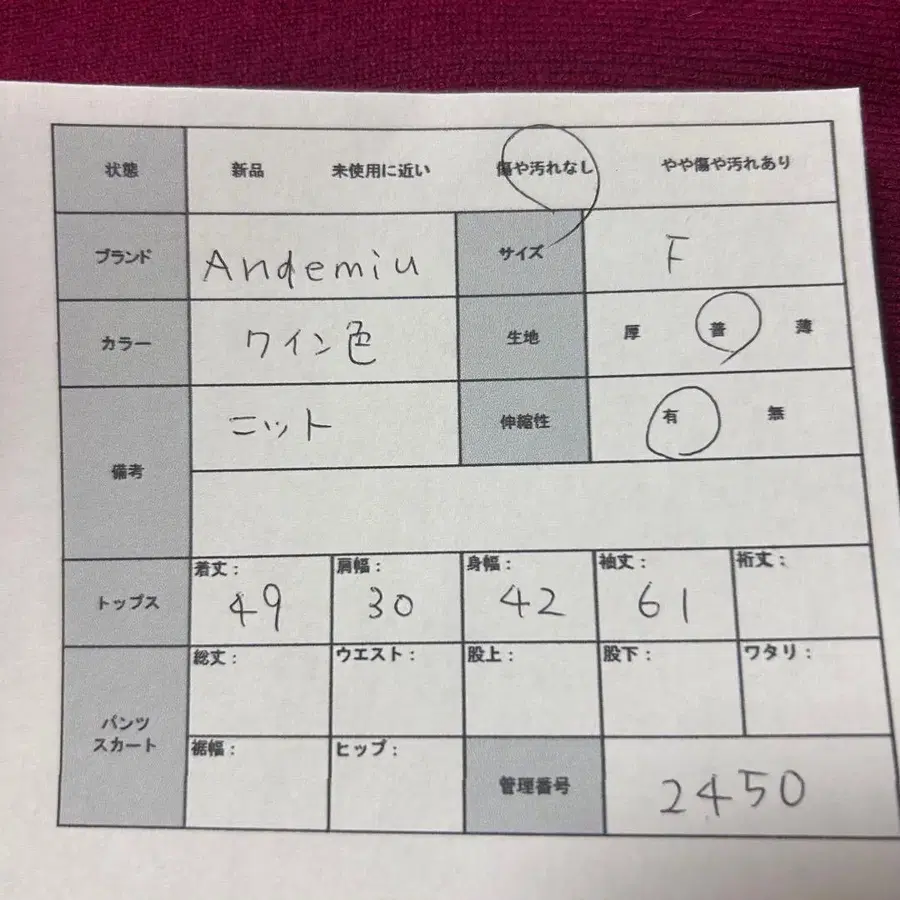 状態 新品 未使用に近い 傷や汚れなし やや傷や汚れあり
ブランド Andemiu サイズ F
カラー ワイン色 生地 厚 普 薄
備考 ニット 伸縮性 有 無
トップス 着丈: 49 肩幅: 30 身幅: 42 袖丈: 61 裄丈:
パンツ スカート 総丈: ウエスト: 股上: 股下: ワタリ:
裾幅: ヒップ: 管理番号 2450